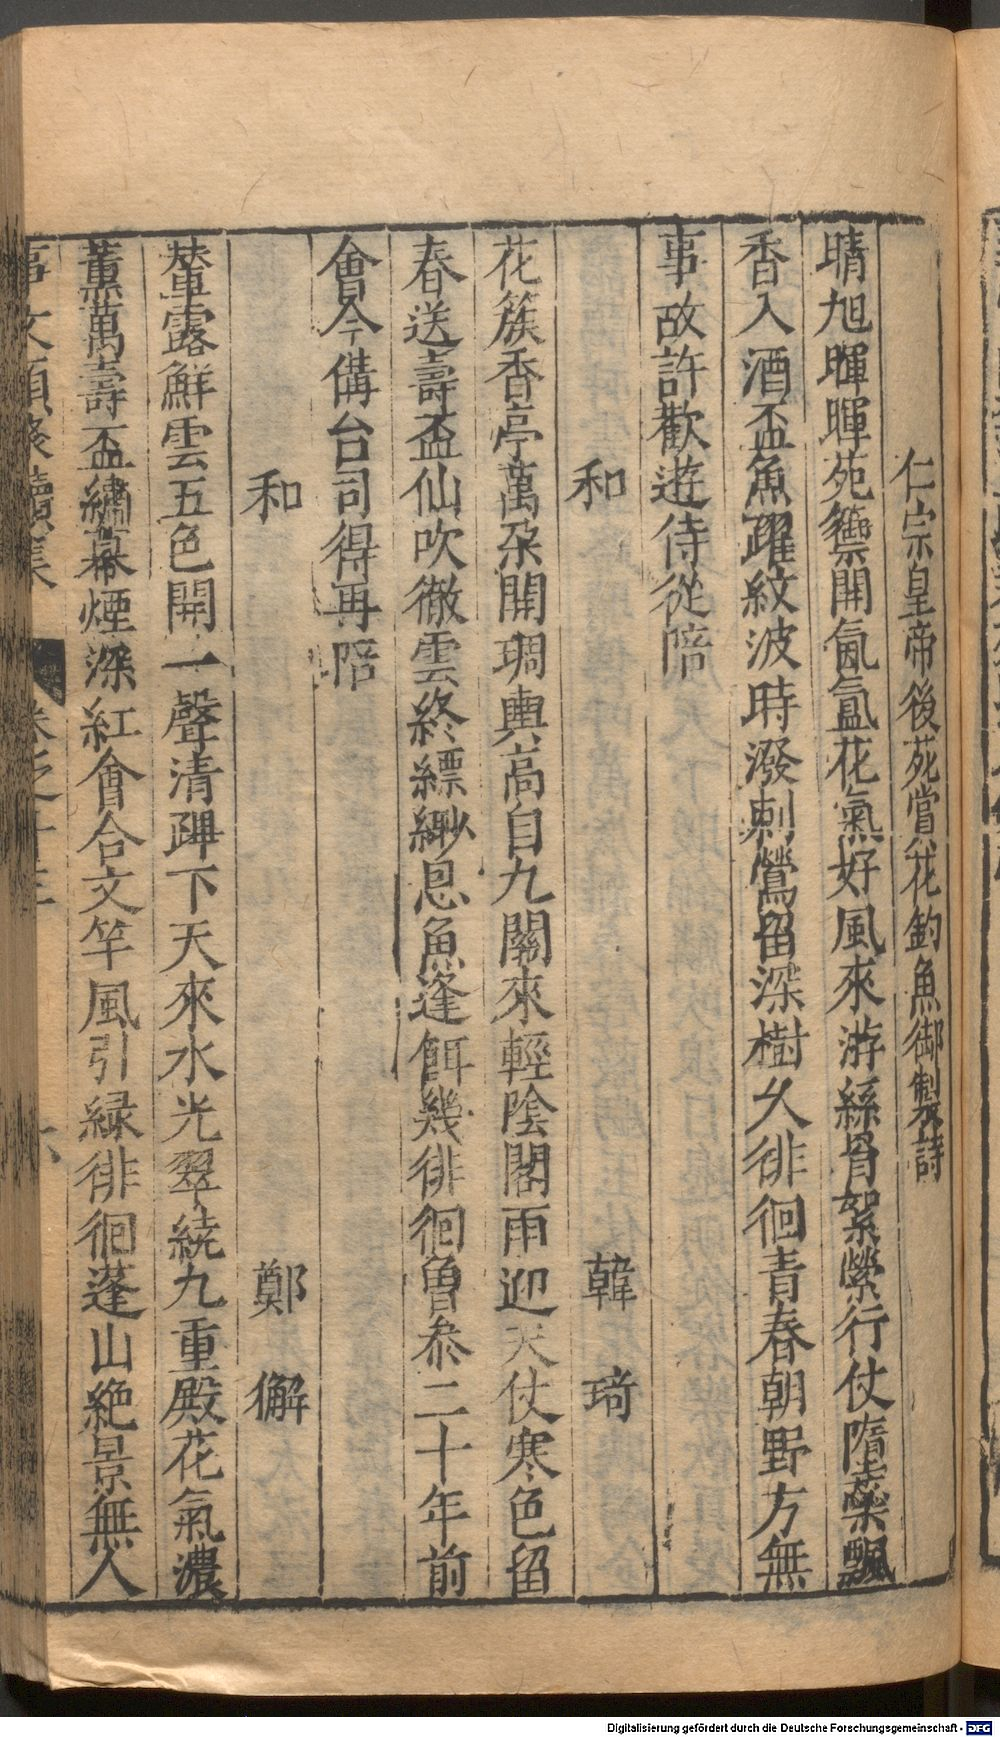 仁宗皇帝後苑賞花釣魚御製詩
晴旭暉暉苑籞開氤氳花氣好風來游絲罥絮縈行仗隋蘂飄
香入酒盃魚躍紋波時潑剌鶯留深樹久徘徊青春朝野方無
事故許歡遊侍從陪
和 韓琦
花簇香亭萬朶開琱輿高自九關來輕陰閣雨迎天仗寒色留
春送壽盃仙吹徹雲終縹緲恩魚逢餌幾徘徊曾叅二十年前
會今備台司得再陪
和 鄭獬
輦露鮮雲五色開一聲清蹕下天來水光翠繞九重殿花氣濃
薰萬壽盃繡幕煙深紅會合文竿風引緑徘徊蓬山絶景無人
事文類聚續集 卷之十三 六
Digitalisierung gefördert durch die Deutsche Forschungsgemeinschaft - DFG